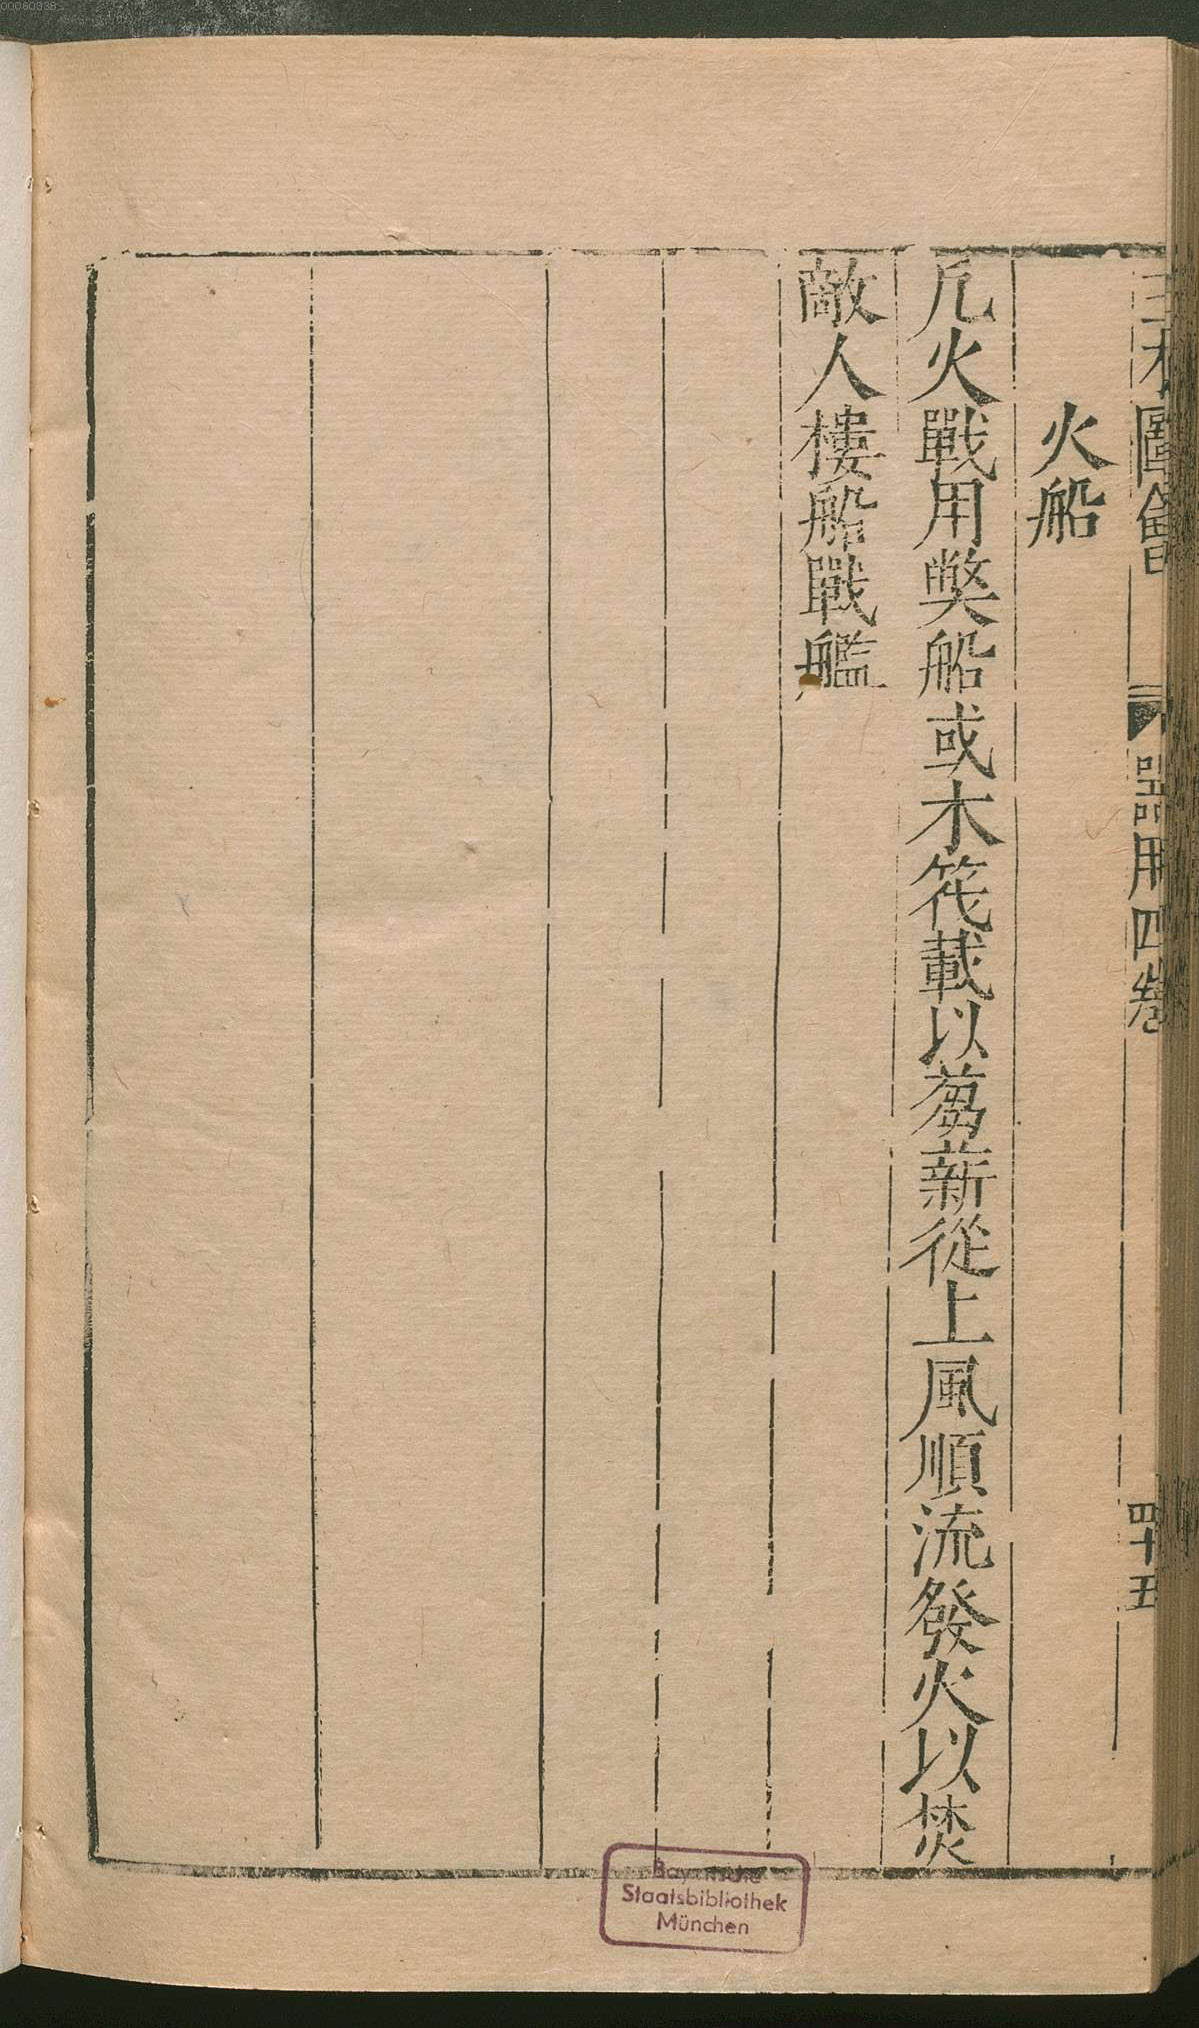 三才圖會 器用四卷 四十五
火船
凡火戰用獘船或木筏載以芻薪從上風順流發火以焚
敵人樓船戰艦
Bayerische
Staatsbibliothek
München
00060338